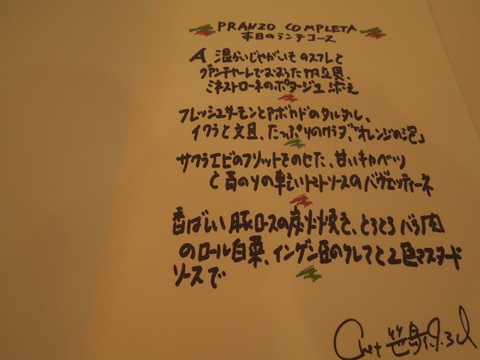 PRANZO COMPLETA
本日のランチコース
A 温かいじゃがいものスフレと
グアンチャーレでおおった帆立貝、
ミネストローネのポタージュ添え
フレッシュサーモンとアボカドのタルタル、
イクラと文旦、たっぷりのクラゲ、"オレンジの泡"
サクラエビのフリットをのせた、甘いキャベツ
と青のりの辛いトマトソースのバヴェッティーネ
香ばしい豚ロースの炭火焼き、とろとろバラ肉
のロール白菜、インゲン豆のクレマと2色マスタード
ソースで
Chef